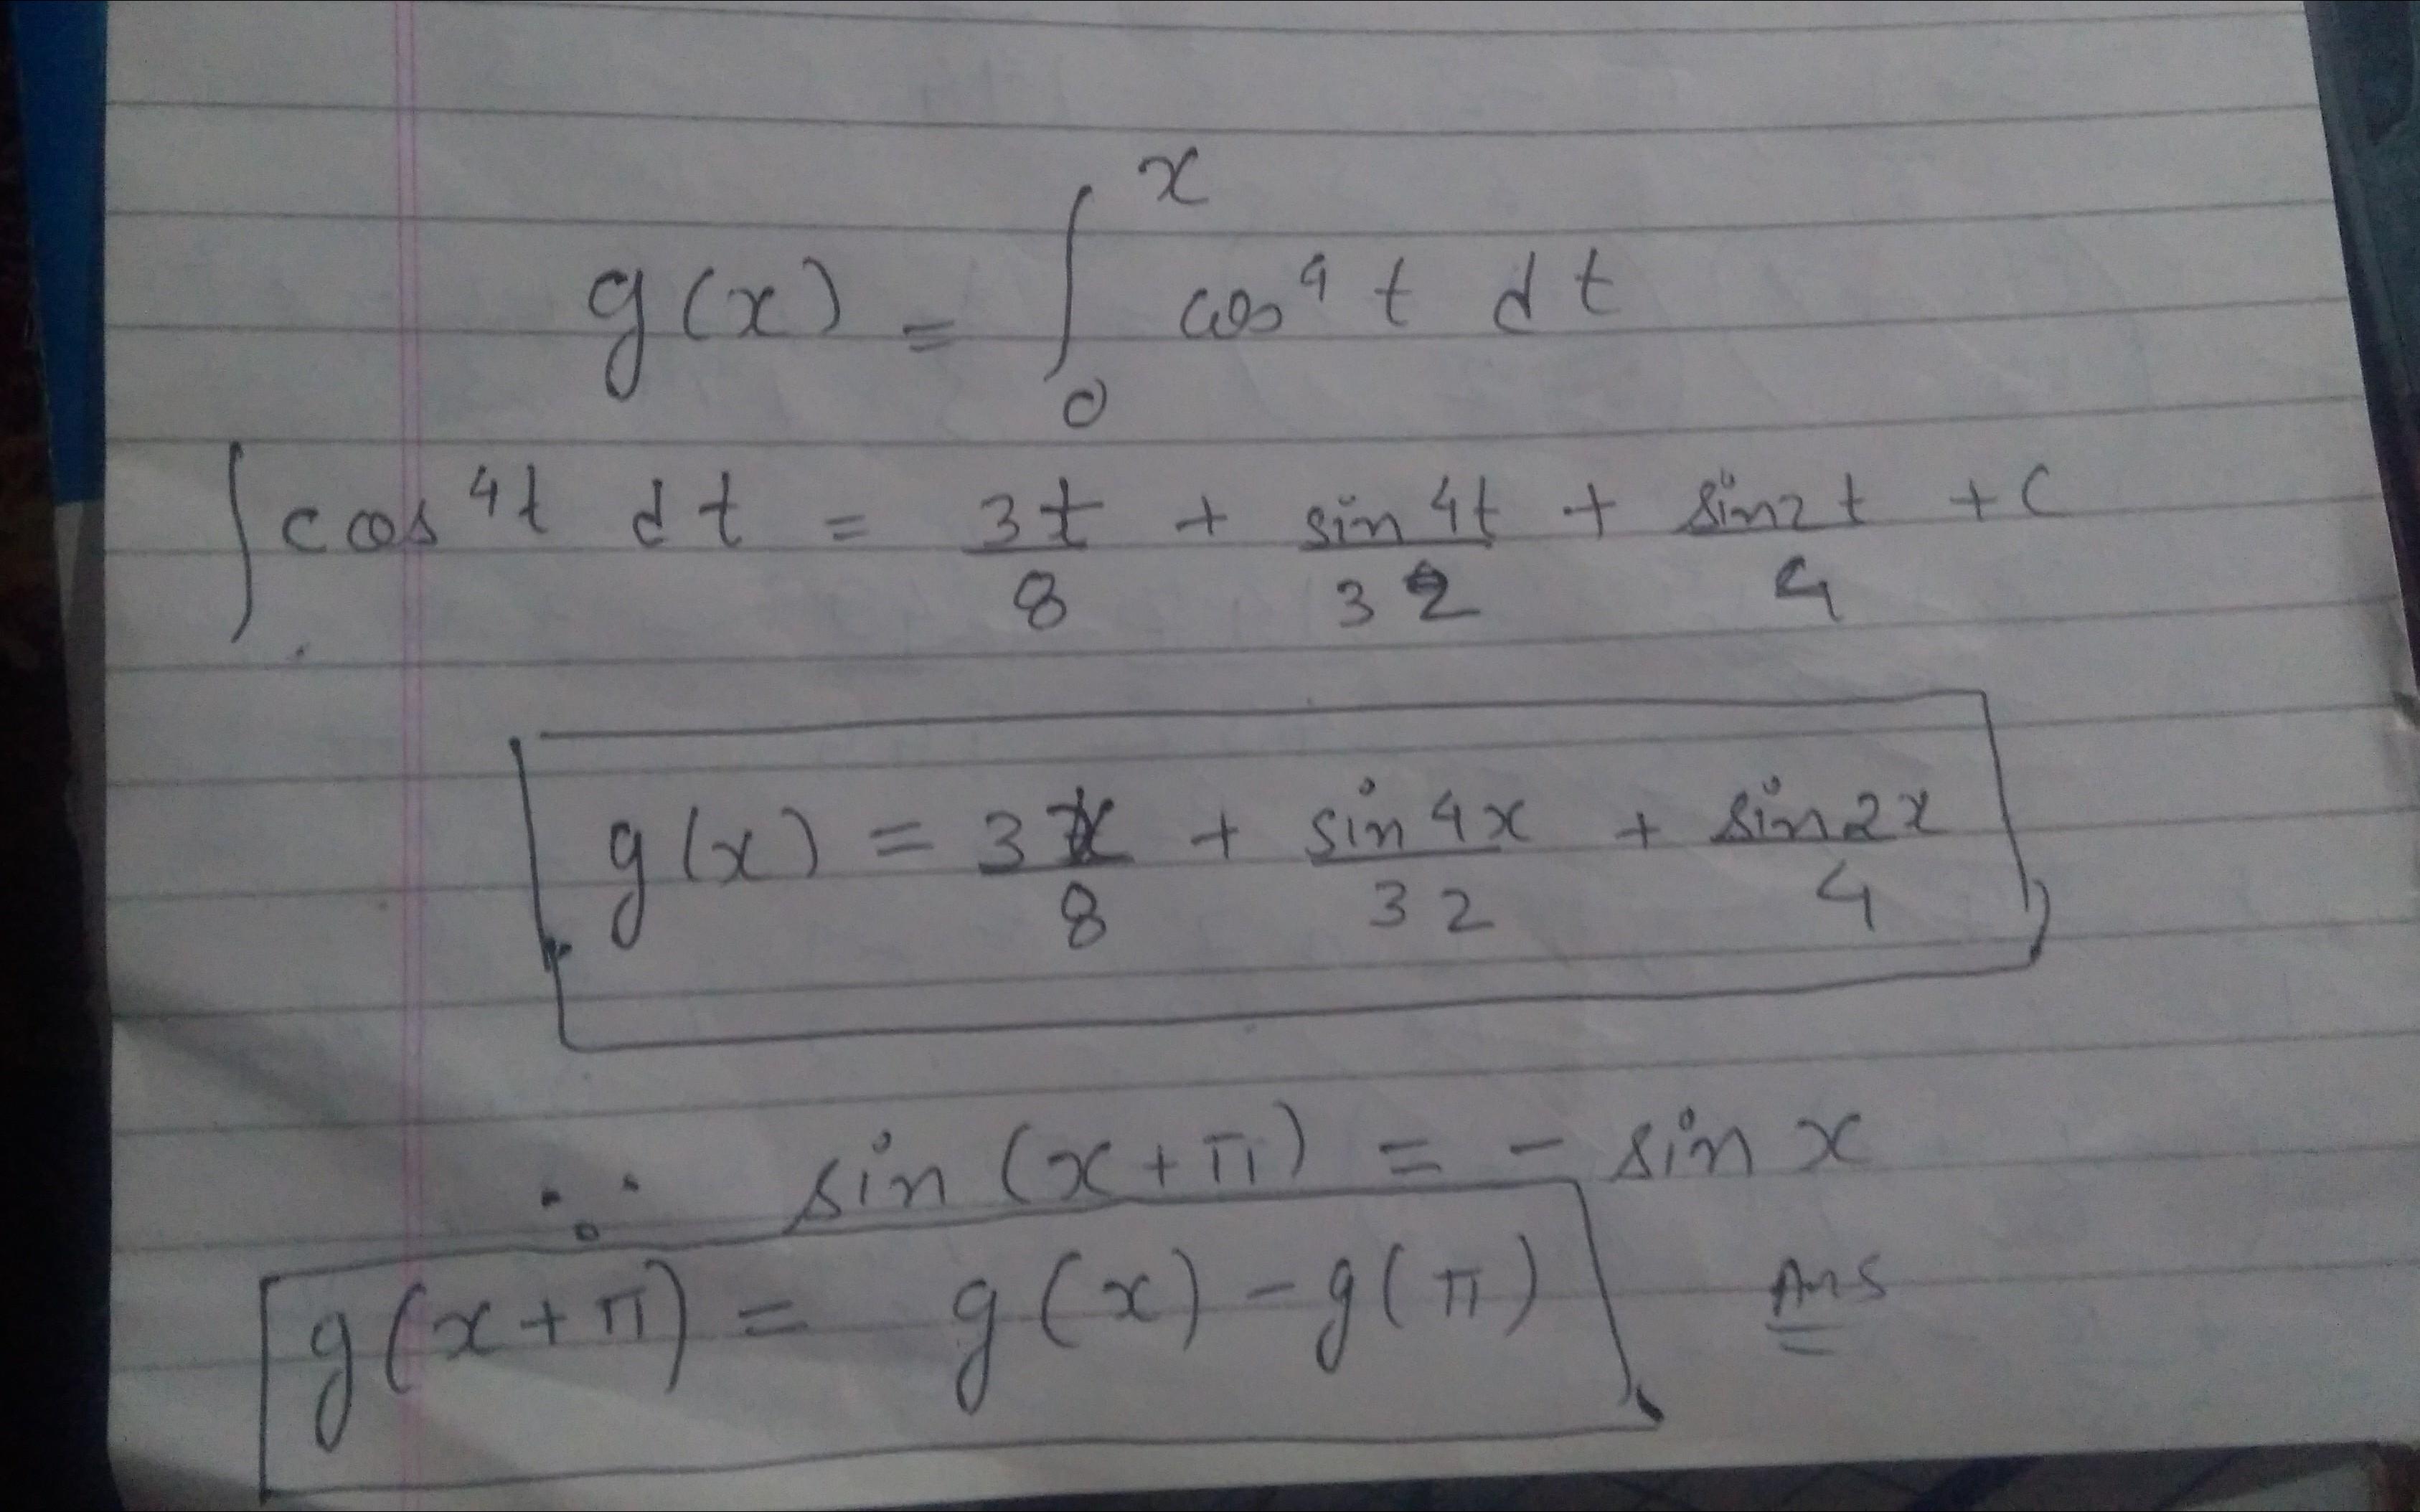 g(x) = ∫₀ˣ cos⁴ t dt
∫ cos⁴t dt = 3t/8 + sin 4t/32 + sin2t/4 + C
g(x) = 3x/8 + sin 4x/32 + sin2x/4
∵ sin (x + π) = - sin x
g(x + π) = g(x) - g(π) Ans